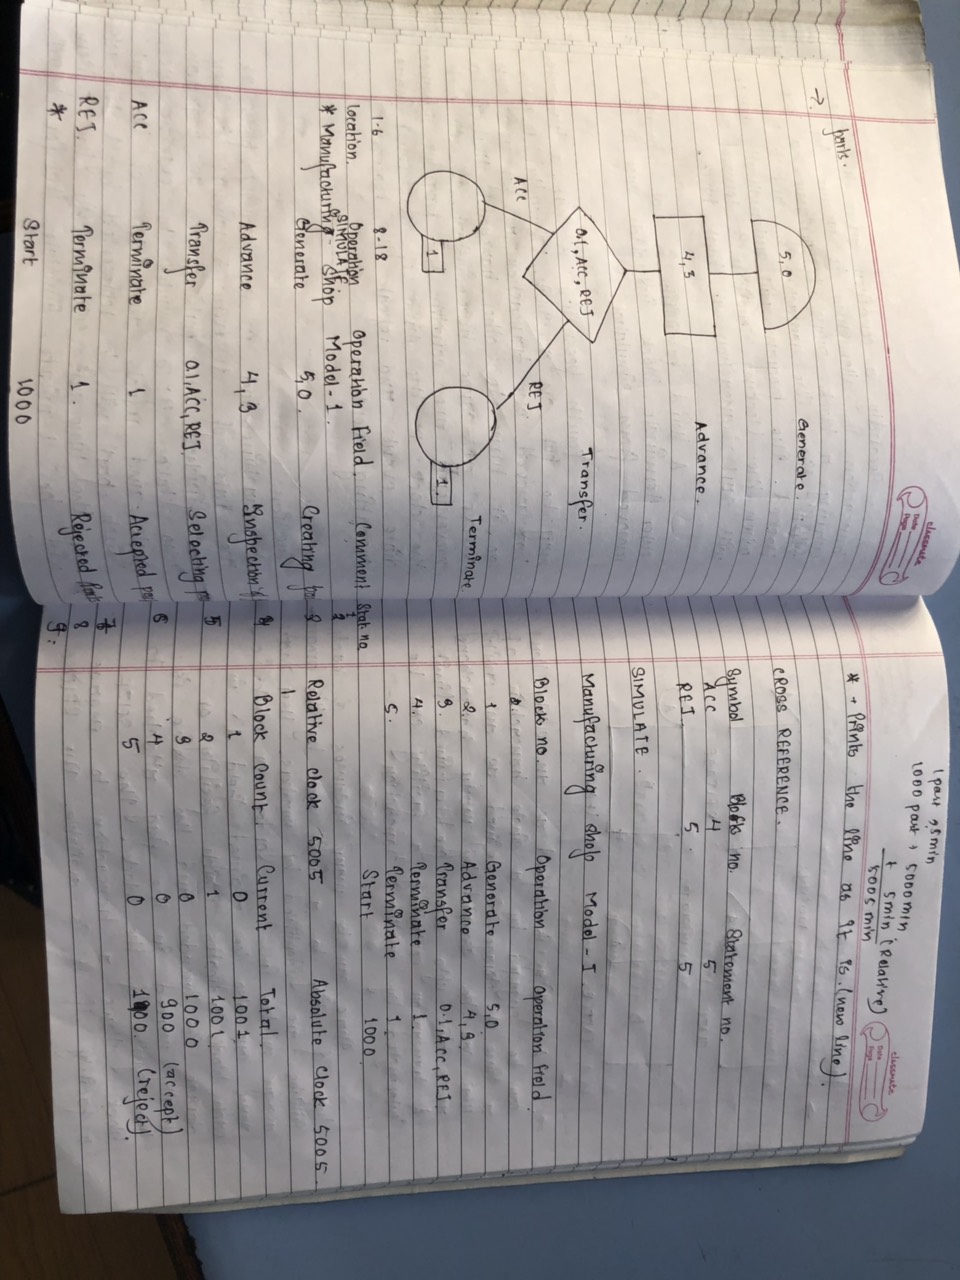 classmate
Date
Page
parts.
→
Generate.
5,0
Advance.
4,3
Transfer.
0.1, ACC, REJ
ACC
REJ
Terminate
1
1.
1-6 8-18
location. Operation Operation Field. Comment Stat. no
SIMULATE 1
* Manufacturing - Shop Model - 1. 2
Generate 5,0. Creating
Advance 4,3 Inspection 4
Transfer 0.1, ACC, REJ Selecting 5
ACC Terminate 1 Accepted 6
REJ. Terminate 1. Rejected 8
* 9.
Start 1000
1 part → 5 min
1000 part → 5000 min
+ 5 min (Relative)
5005 min
classmate
Date
Page
* → Prints the line as it is. (new line).
CROSS REFERENCE.
Symbol Block no. Statement no.
ACC 4 5
REJ. 5. 5
SIMULATE.
Manufacturing shop Model - I
Blocks no. Operation Operation field.
1 Generate 5,0
2. Advance 4,3.
3. Transfer 0.1, ACC, REJ.
4. Terminate 1.
5. Terminate 1.
Start 1000.
Relative clock 5005 Absolute clock 5005.
Block Count. Current Total.
1 0 1001
2 1 1001
3 0 1000
4 0 900 (accept)
5 0 100. (reject).